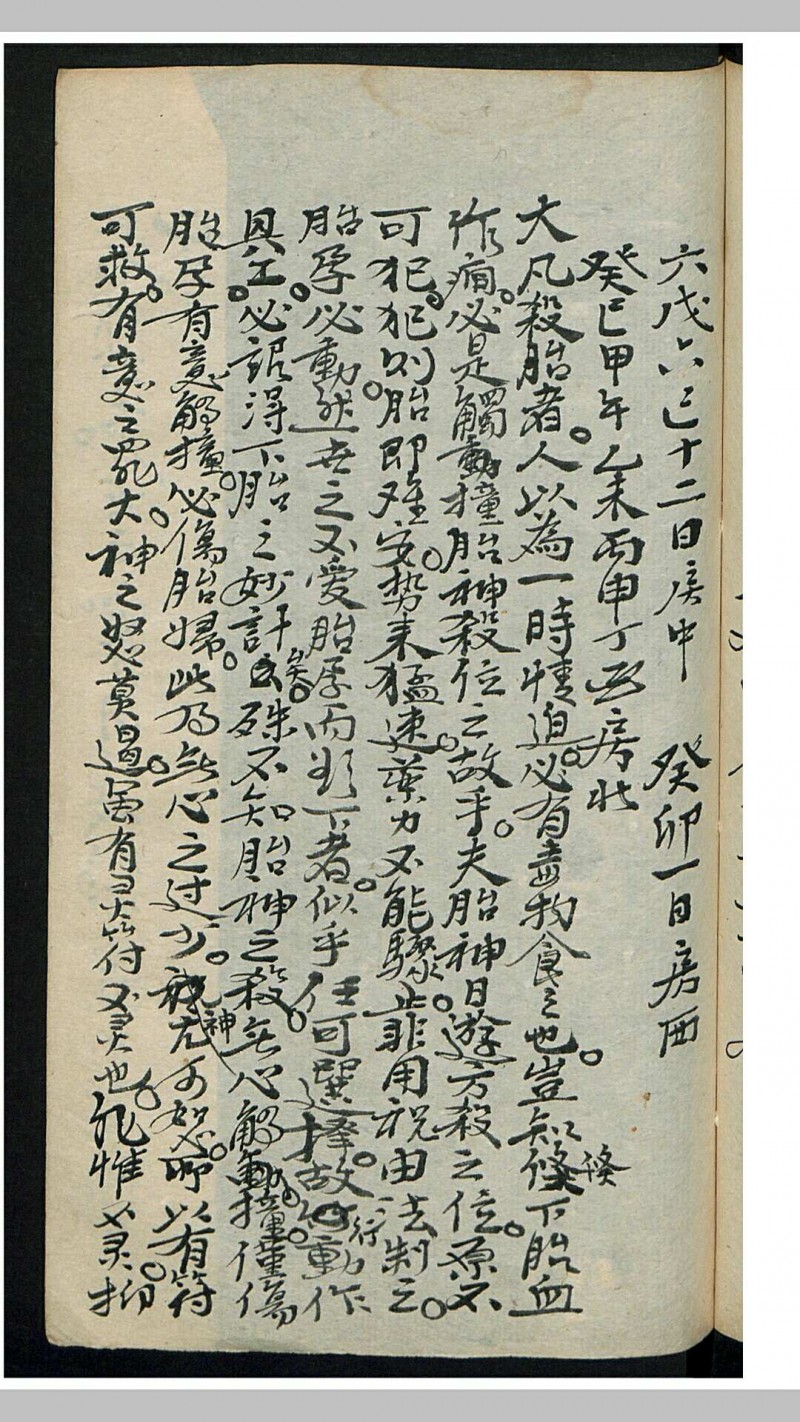 六戊六己十二日房中 癸卯一日房西
癸巳甲午乙未丙申丁酉房北
大凡殺胎者。人以為一時情迫。必有毒物食之也。豈知倏下胎血
作痛。必是觸動撞胎神殺位之故乎。夫胎神日遊方殺之位。原不
可犯。犯則胎即难安。势来猛速。藥力不能驟止。非用祝由法制之。
胎孕必動。然世之不愛胎孕而欲下者。似乎任可選擇。故行動作
具工。必說得下胎之妙計矣。殊不知胎神之殺。無心觸動撞。僅傷
胎孕有意觸撞。必傷胎婦。此乃無心之过少。神尤可恕。所以有符
可救。有意之罪大。神之怒莫過。虽有灵符不灵也。非惟不灵抑